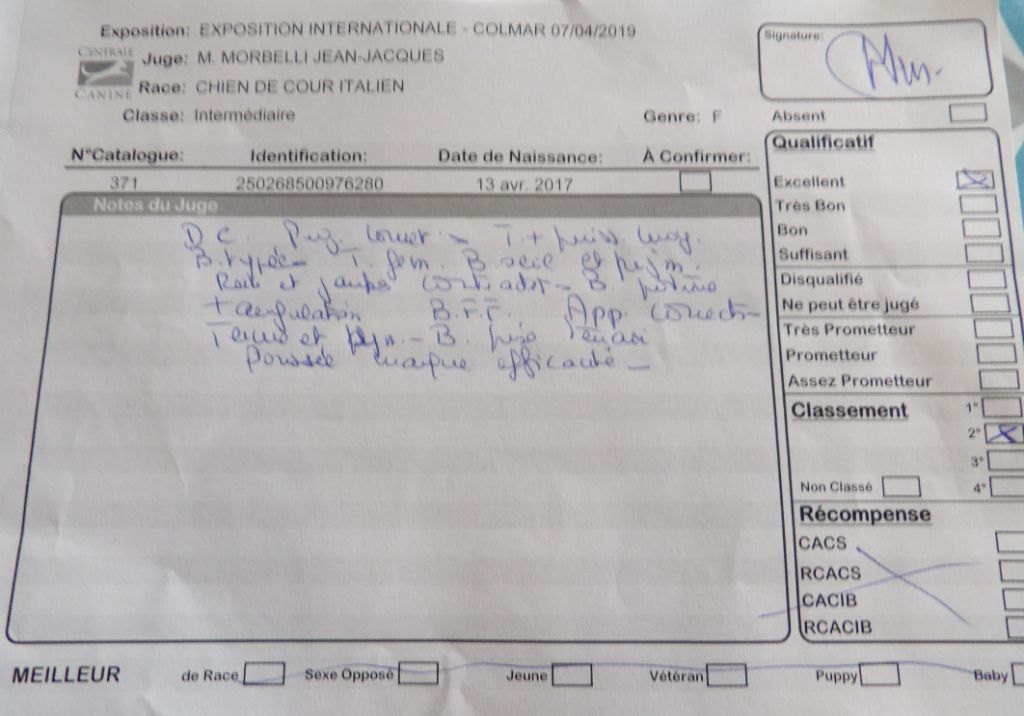 Exposition: EXPOSITION INTERNATIONALE - COLMAR 07/04/2019
CENTRALE CANINE
Juge: M. MORBELLI JEAN-JACQUES
Race: CHIEN DE COUR ITALIEN
Classe: Intermédiaire Genre: F
Signature:
Absent
N°Catalogue: Identification: Date de Naissance: À Confirmer:
371 250268500976280 13 avr. 2017
Notes du Juge
D C. T. +
B. typée - T. fem. B. et
et B. poitrine
+ angulation B.F.F. App. correct -
et - B.
Poussée manque efficacité -
Qualificatif
Excellent
Très Bon
Bon
Suffisant
Disqualifié
Ne peut être jugé
Très Prometteur
Prometteur
Assez Prometteur
Classement
1°
2°
3°
Non Classé 4°
Récompense
CACS
RCACS
CACIB
RCACIB
MEILLEUR de Race Sexe Opposé Jeune Vétéran Puppy Baby